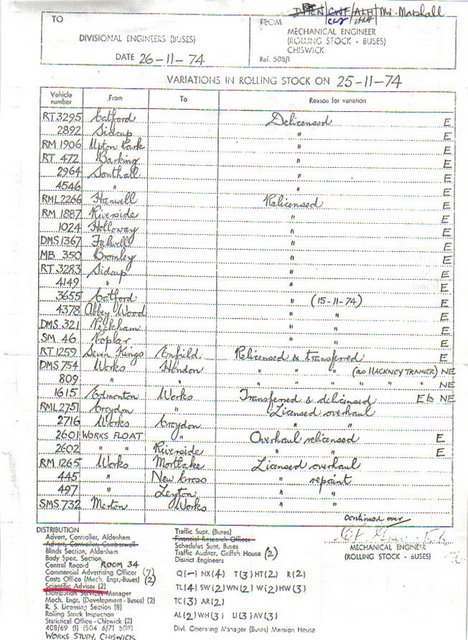 TO
DIVISIONAL ENGINEERS (BUSES)
DATE 26-11-74
Mr. Marshall
FROM
MECHANICAL ENGINEER
(ROLLING STOCK - BUSES)
CHISWICK
Ref. 508/1
VARIATIONS IN ROLLING STOCK ON 25-11-74
Vehicle number From To Reason for variation
RT 3295 Catford Delicensed E
2892 Sidcup " E
RM 1906 Upton Park " E
RT 472 Barking " E
2964 Southall " E
4546 " " E
RML 2266 Hanwell Relicensed E
RM 1887 Riverside " E
1024 Holloway " E
DMS 1367 Fulwell " E
MB 350 Bromley " E
RT 3283 Sidcup " E
4149 " " E
3655 Catford " (15-11-74) E
4378 Abbey Wood " E
DMS 321 Peckham " E
SM 46 Poplar " E
RT 1259 Seven Kings Enfield Relicensed & transferred E
DMS 754 Works Hendon " " " (as HACKNEY TRAINER) NE
809 " " " " " " " NE
1615 Edmonton Works Transferred & delicensed Eb NE
RML 2751 Croydon " Licensed overhaul
2716 Works Croydon "
2601 WORKS FLOAT Overhaul relicensed E
2602 " " Riverside " " E
RM 1265 Works Mortlake Licensed overhaul
445 " New Cross " repaint
497 " Leyton " "
SMS 732 Merton Works "
continued over
MECHANICAL ENGINEER
(ROLLING STOCK - BUSES)
DISTRIBUTION
Advert. Controller, Aldenham
Advert. Controller, Camberwell
Blinds Section, Aldenham
Body Spec. Section
Central Record ROOM 34
Commercial Advertising Officer (7)
Costs Office (Mech. Engr. Buses) (2)
Scientific Adviser (2)
Distribution Services Manager
Mech. Engr. (Development - Buses) (2)
R. S. Licensing Section (8)
Rolling Stock Inspection
Statistical Office - Chiswick (2)
408/69 (1) (504 6/71 50)
WORKS STUDY, CHISWICK
Traffic Supt. (Buses)
Financial Research Officer
Schedules Supt. Buses
Traffic Auditor, Griffith House (2)
District Engineers
Q (-) NX (4) T (3) HT (2) R (2)
TL (4) SW (2) WN (2) W (2) HW (3)
TC (3) AR (2)
AL (2) WH (3) U (3) AV (3)
Divl. Operating Manager (Buses) Mansion House